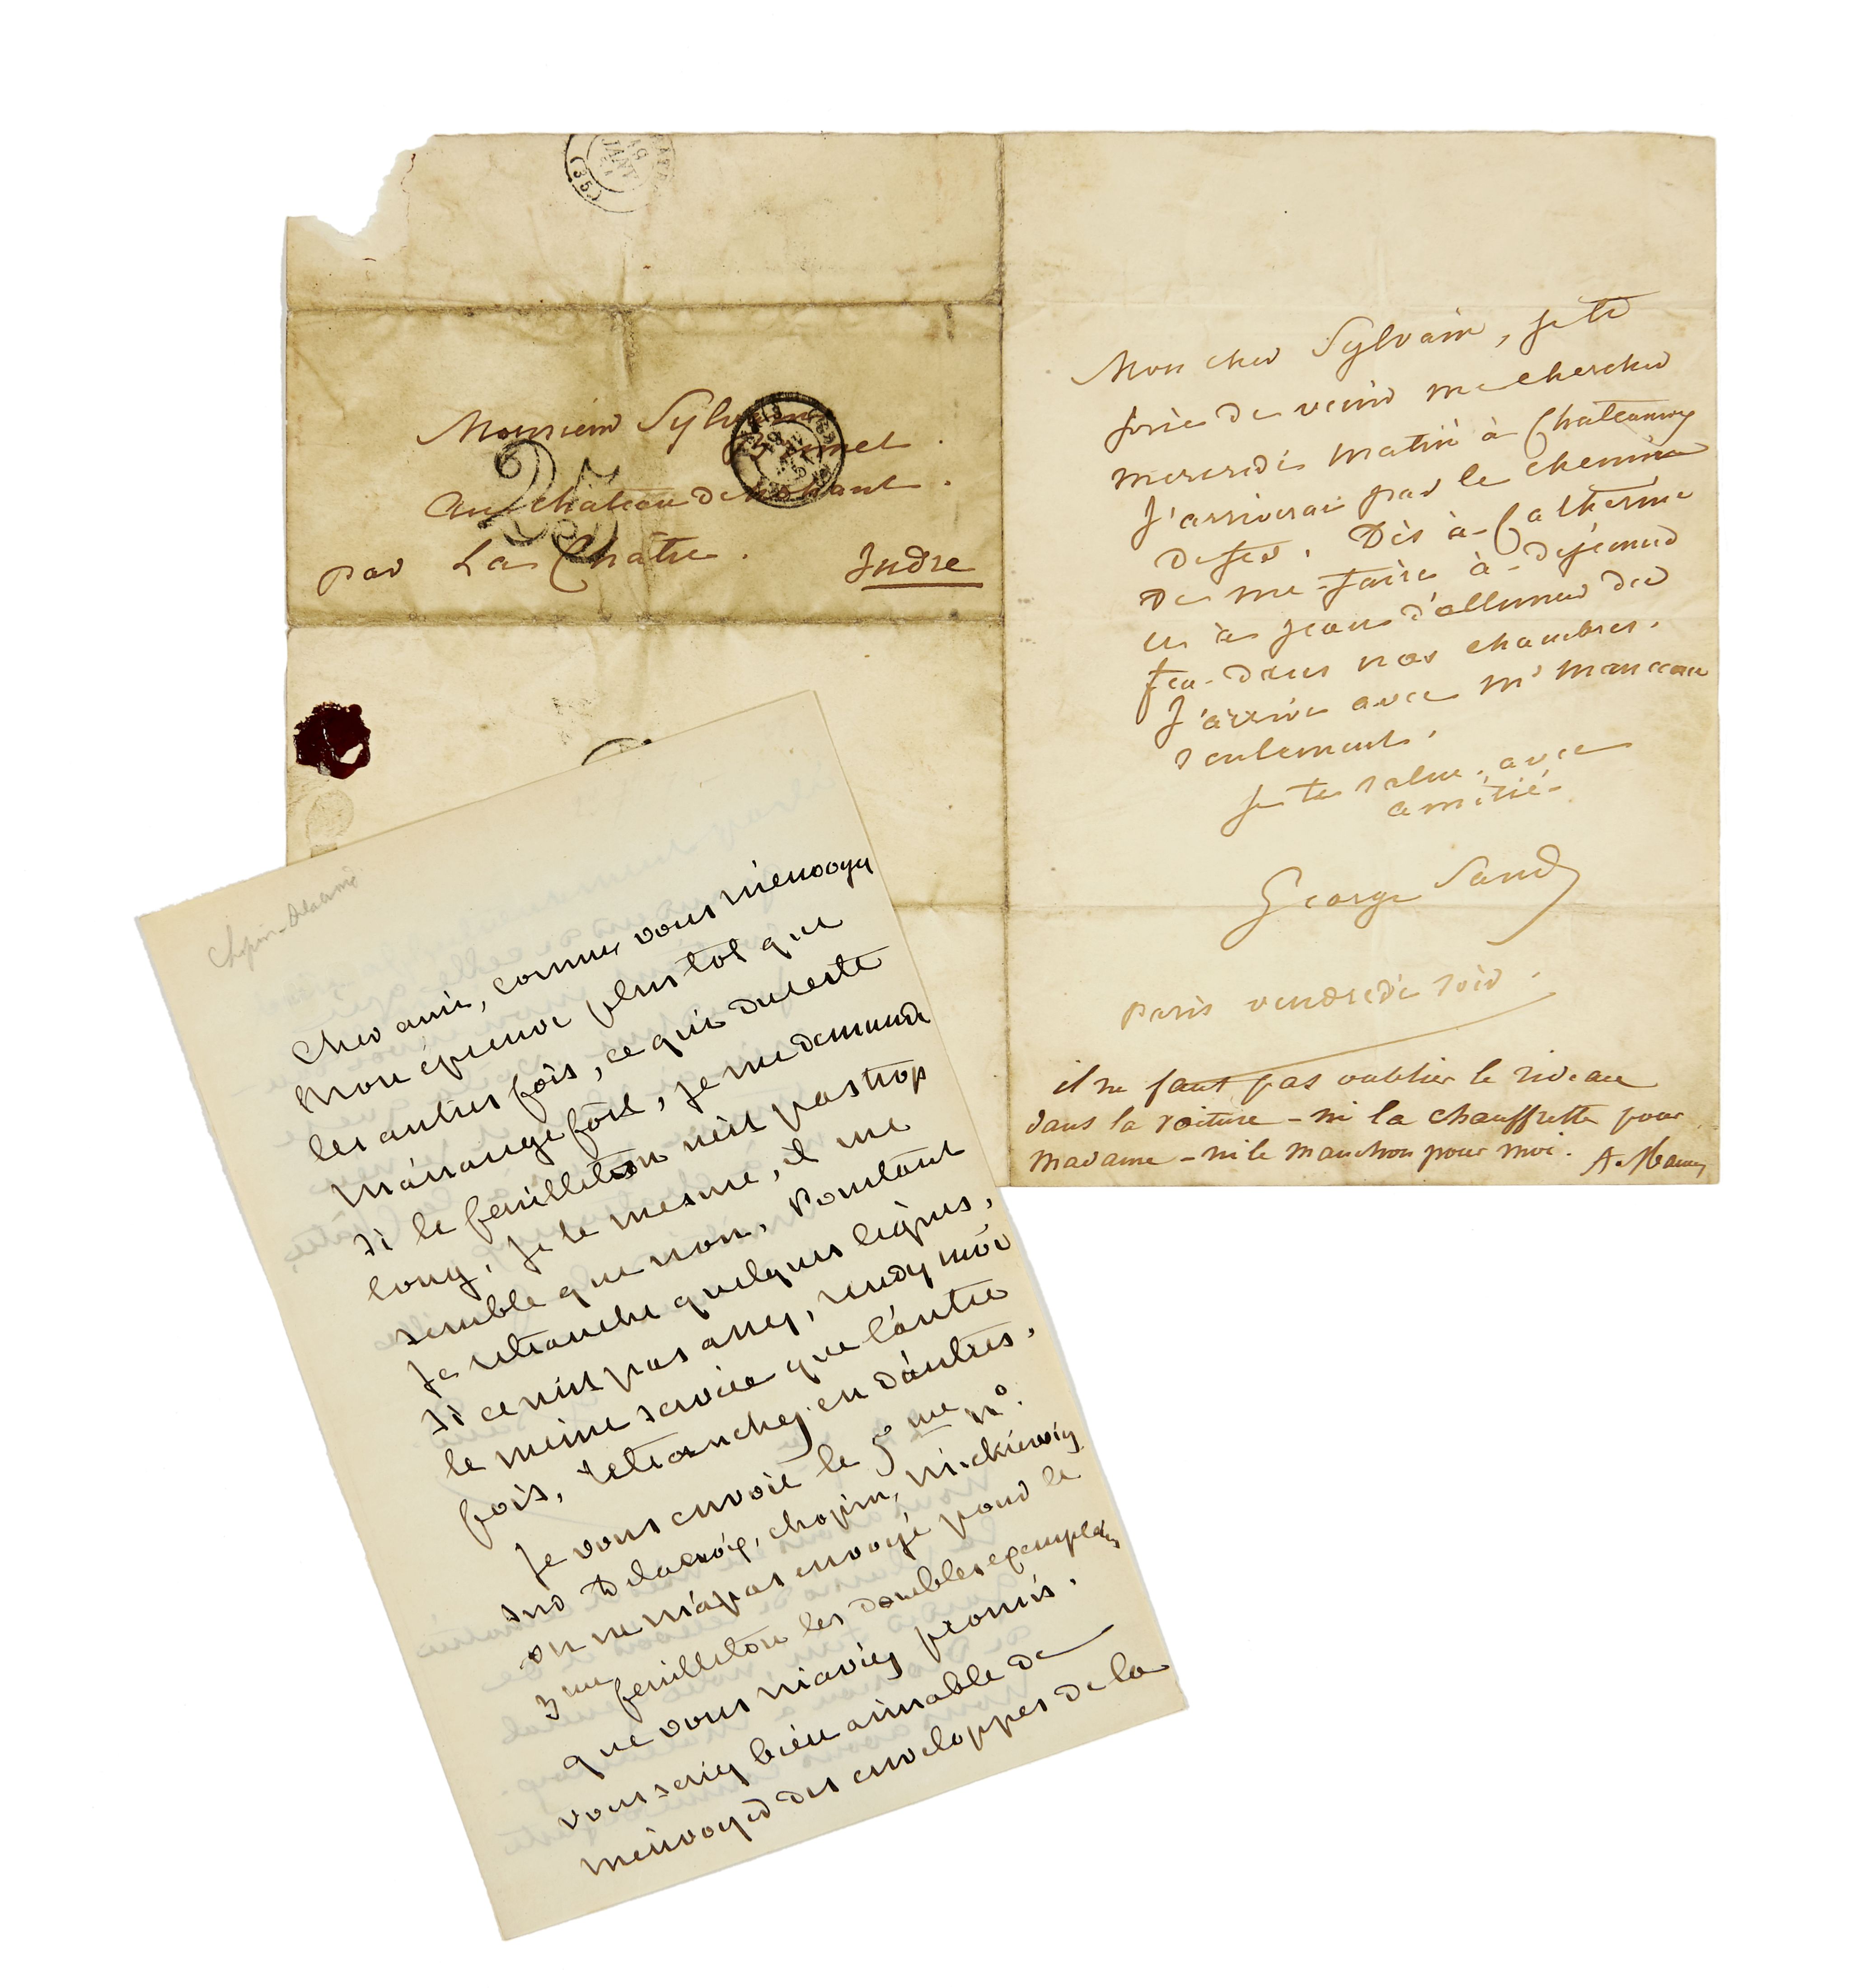 Monsieur Sylvain
Brunet
au chateau de nohant.
par La Châtre.
Indre
25
JANV
(35)
Mon cher Sylvain, je te
prie de venir me chercher
mercredi matin à Chateauroux
J'arriverai par le chemin
de fer. Dis à Catherine
De me faire à déjeuner
et à jean d'allumer du
feu dans nos chambres.
J'arrive avec Mr Manceau
seulement.
Je te salue avec
amitié
George Sand
Paris vendredi soir.
il ne faut pas oublier le rideau
dans la voiture – ni la chauffrette pour
madame – ni le manchon pour moi.
Chopin-Delacroix
Cher ami, comme vous m'envoyez
mon épreuve plus tot que
les autres fois, ce qui du reste
m'arrange fort, je me demande
si le feuilleton n'est pas trop
long. Je le mesure, il me
semble que non. Pourtant
je retranche quelques lignes,
si ce n'est pas assez, rendez moi
le même service que l'autre
fois, retranchez en d'autres.
Je vous envoie le 5me no.
sur Delacroix, chopin, mickiewicz
on ne m'a pas envoyé pour le
3me feuilleton les doubles exemplaires
que vous m'aviez promis.
vous seriez bien aimable de
m'envoyer des enveloppes de la